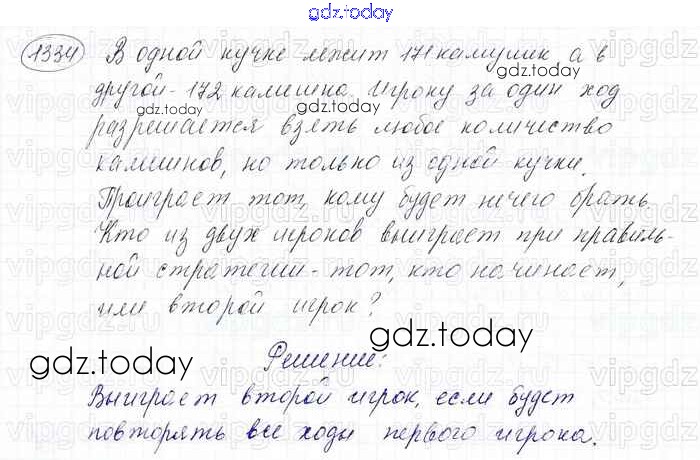 gdz.today
1334 В одной кучке лежит 171 камушик, а в
другой - 172 камешка. Игроку за один ход
разрешается взять любое количество
камешков, но только из одной кучки.
Проиграет тот, кому будет нечего брать.
Кто из двух игроков выиграет при правиль-
ной стратегии - тот, кто начинает,
или второй игрок?
gdz.today
gdz.today
gdz.today
Решение:
gdz.today
Выиграет второй игрок, если будет
повторять все ходы первого игрока.